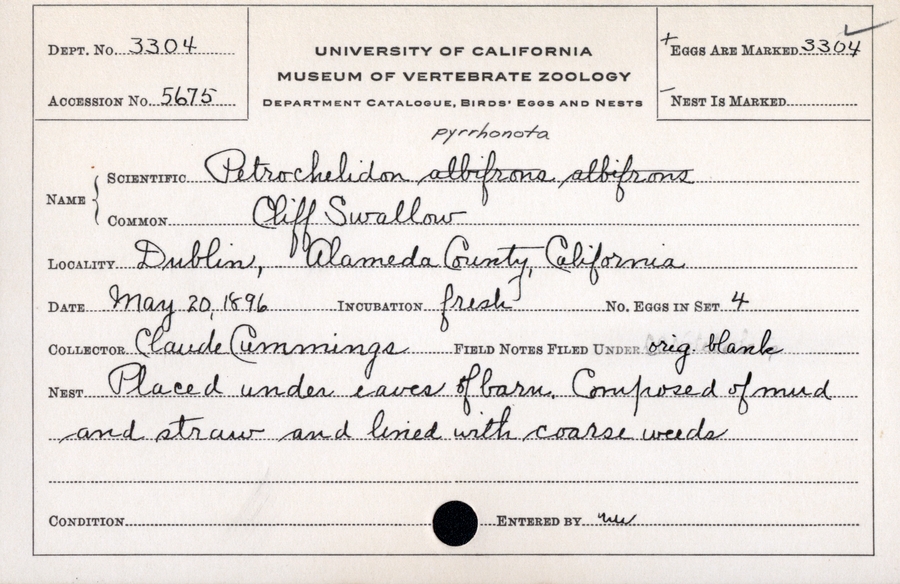 Dept. No. 3304
Accession No. 5675
UNIVERSITY OF CALIFORNIA
MUSEUM OF VERTEBRATE ZOOLOGY
Department Catalogue, Birds' Eggs and Nests
+ Eggs Are Marked 3304
- Nest Is Marked
pyrrhonota
Name
Scientific Petrochelidon albifrons albifrons
Common Cliff Swallow
Locality Dublin, Alameda County, California
Date May 20, 1896 Incubation fresh No. Eggs in Set 4
Collector Claude Cummings Field Notes Filed Under orig. blank
Nest Placed under eaves of barn. Composed of mud
and straw and lined with coarse weeds
Condition Entered by